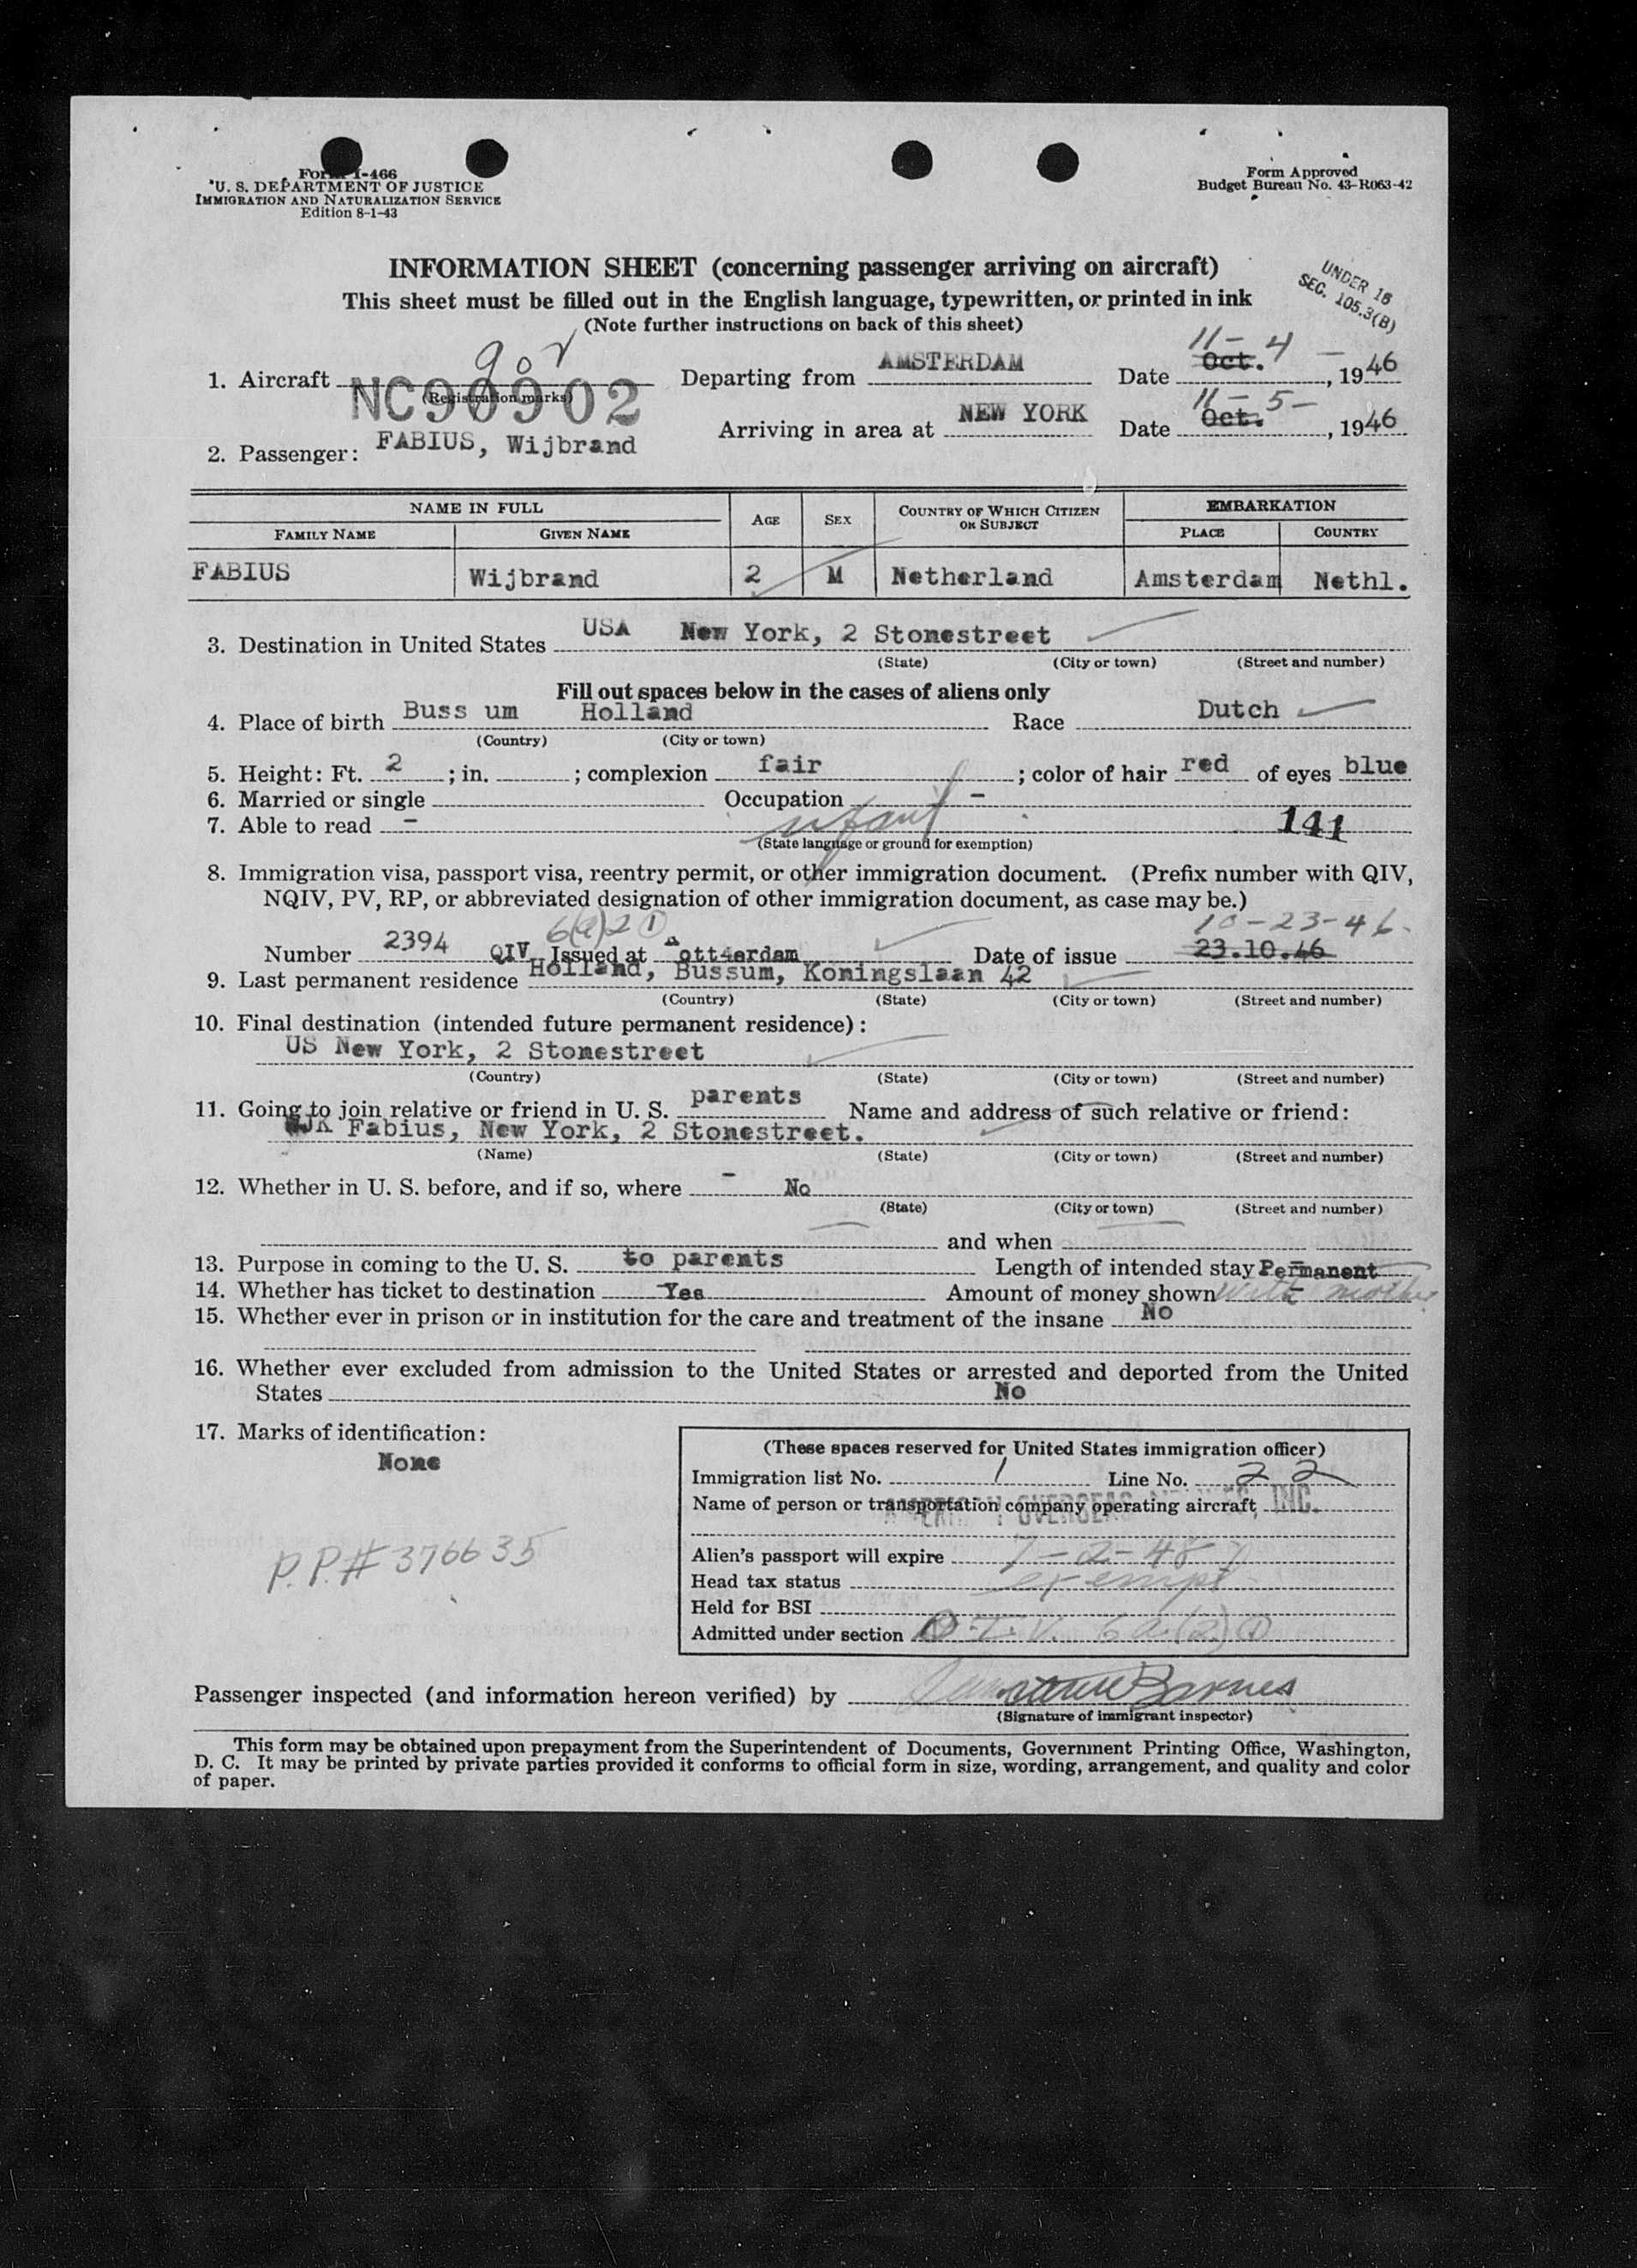 Form I-466
U. S. DEPARTMENT OF JUSTICE
IMMIGRATION AND NATURALIZATION SERVICE
Edition 8-1-43
Form Approved
Budget Bureau No. 43-R063-42
INFORMATION SHEET (concerning passenger arriving on aircraft)
This sheet must be filled out in the English language, typewritten, or printed in ink
(Note further instructions on back of this sheet)
UNDER 16
SEC. 105.3(B)
1. Aircraft NC90902 Departing from AMSTERDAM Date Oct. 11-4-, 1946
(Registration marks)
Arriving in area at NEW YORK Date Oct. 11-5-, 1946
2. Passenger: FABIUS, Wijbrand
NAME IN FULL AGE SEX COUNTRY OF WHICH CITIZEN OR SUBJECT EMBARKATION
FAMILY NAME GIVEN NAME PLACE COUNTRY
FABIUS Wijbrand 2 M Netherland Amsterdam Nethl.
3. Destination in United States USA New York, 2 Stonestreet
(State) (City or town) (Street and number)
Fill out spaces below in the cases of aliens only
4. Place of birth Buss um Holland Race Dutch
(Country) (City or town)
5. Height: Ft. 2 ; in. ; complexion fair ; color of hair red of eyes blue
6. Married or single Occupation -
7. Able to read - infant 141
(State language or ground for exemption)
8. Immigration visa, passport visa, reentry permit, or other immigration document. (Prefix number with QIV,
NQIV, PV, RP, or abbreviated designation of other immigration document, as case may be.)
6(a)2 ① 10-23-46.
Number 2394 QIV Issued at Date of issue 23.10.46
9. Last permanent residence Holland, Bussum, Koningslaan 42
(Country) (State) (City or town) (Street and number)
10. Final destination (intended future permanent residence):
US New York, 2 Stonestreet
(Country) (State) (City or town) (Street and number)
11. Going to join relative or friend in U. S. parents Name and address of such relative or friend:
WJK Fabius, New York, 2 Stonestreet.
(Name) (State) (City or town) (Street and number)
12. Whether in U. S. before, and if so, where - No
(State) (City or town) (Street and number)
and when
13. Purpose in coming to the U. S. to parents Length of intended stay Permanent
14. Whether has ticket to destination Yes Amount of money shown - with mother
15. Whether ever in prison or in institution for the care and treatment of the insane No
16. Whether ever excluded from admission to the United States or arrested and deported from the United
States No
17. Marks of identification:
None
P.P.# 376635
(These spaces reserved for United States immigration officer)
Immigration list No. 1 Line No. 22
Name of person or transportation company operating aircraft OVERSEAS INC.
Alien's passport will expire 7-2-48
Head tax status exempt
Held for BSI
Admitted under section Q.I.V. 6a(2)①
Passenger inspected (and information hereon verified) by Barnes
(Signature of immigrant inspector)
This form may be obtained upon prepayment from the Superintendent of Documents, Government Printing Office, Washington,
D. C. It may be printed by private parties provided it conforms to official form in size, wording, arrangement, and quality and color
of paper.